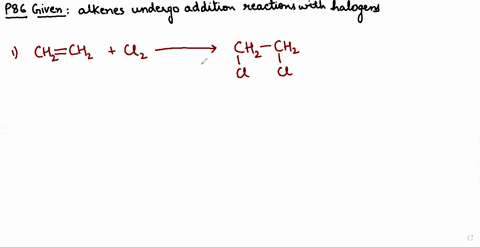 P86 Given: alkenes undergo addition reactions with halogens
1) CH2=CH2 + Cl2 → CH2-CH2
Cl Cl